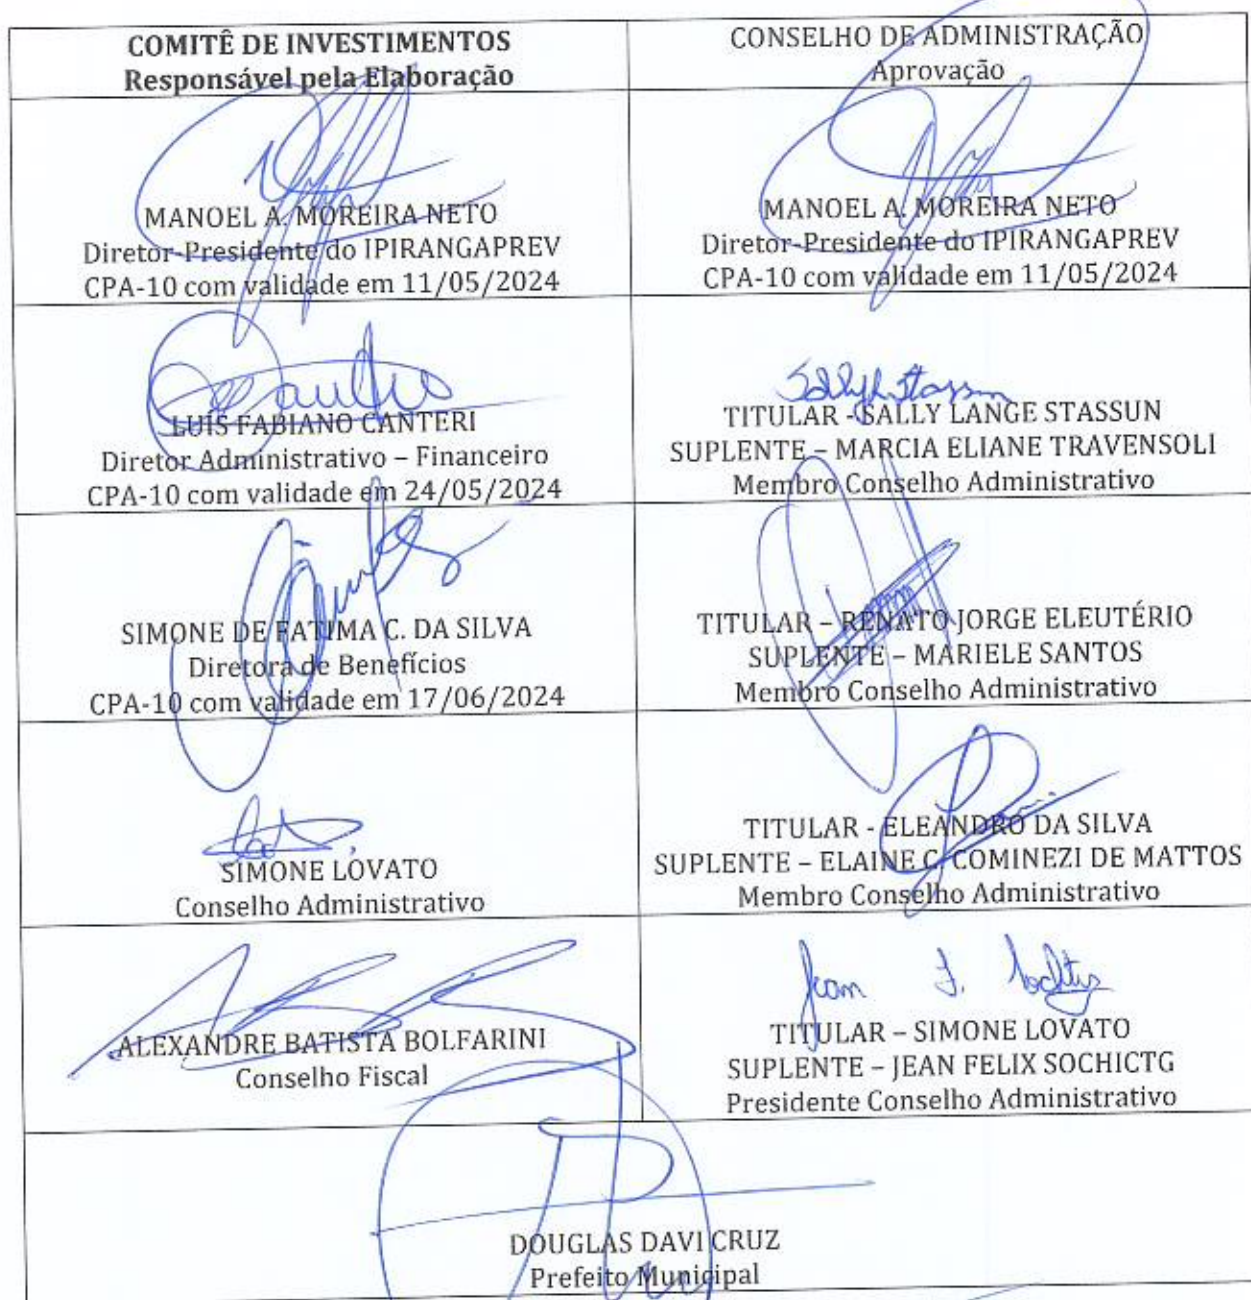 COMITÊ DE INVESTIMENTOS
Responsável pela Elaboração
CONSELHO DE ADMINISTRAÇÃO
Aprovação
MANOEL A. MOREIRA NETO
Diretor-Presidente do IPIRANGAPREV
CPA-10 com validade em 11/05/2024
MANOEL A. MOREIRA NETO
Diretor-Presidente do IPIRANGAPREV
CPA-10 com validade em 11/05/2024
LUÍS FABIANO CANTERI
Diretor Administrativo – Financeiro
CPA-10 com validade em 24/05/2024
Sally L Stassun
TITULAR - SALLY LANGE STASSUN
SUPLENTE – MARCIA ELIANE TRAVENSOLI
Membro Conselho Administrativo
SIMONE DE FATIMA C. DA SILVA
Diretora de Benefícios
CPA-10 com validade em 17/06/2024
TITULAR – RENATO JORGE ELEUTÉRIO
SUPLENTE – MARIELE SANTOS
Membro Conselho Administrativo
SIMONE LOVATO
Conselho Administrativo
TITULAR - ELEANDRO DA SILVA
SUPLENTE – ELAINE C. COMINEZI DE MATTOS
Membro Conselho Administrativo
ALEXANDRE BATISTA BOLFARINI
Conselho Fiscal
Jean F.
TITULAR – SIMONE LOVATO
SUPLENTE – JEAN FELIX SOCHICTG
Presidente Conselho Administrativo
DOUGLAS DAVI CRUZ
Prefeito Municipal